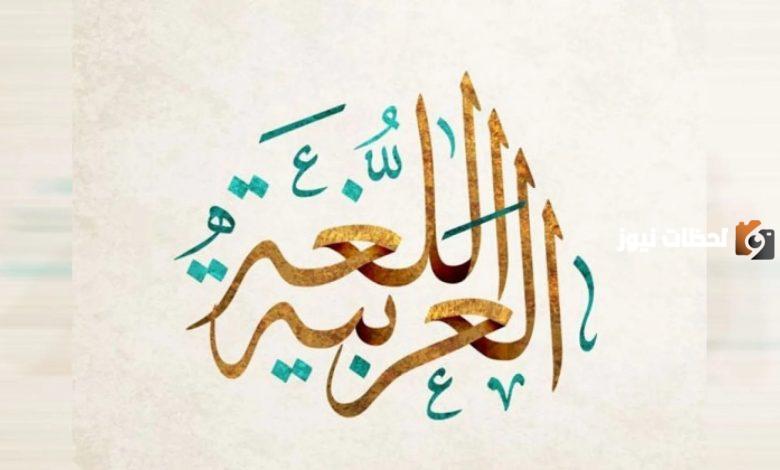 اللُّغة
العربية
لحظات نيوز